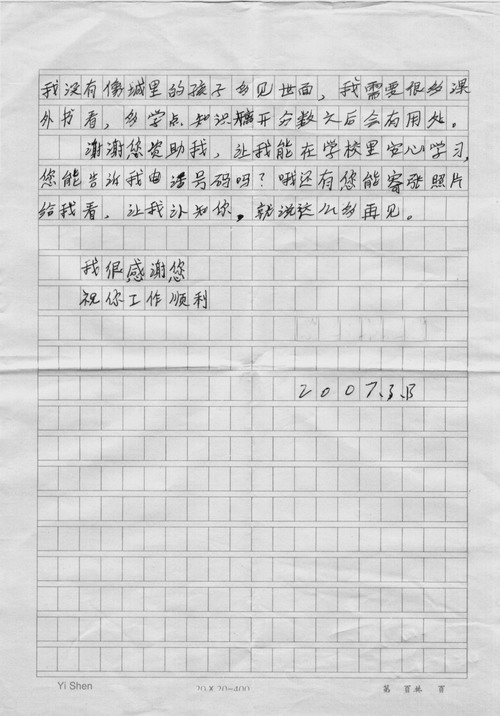 我没有像城里的孩子多见世面，我需要很多课
外书看，多学点知识撇开分数之后会有用处。
谢谢您资助我，让我能在学校里安心学习，
您能告诉我电话号码吗？哦还有您能寄张照片
给我看，让我认知你，就说这么多再见。
我很感谢您
祝你工作顺利
2007.3.13
Yi Shen